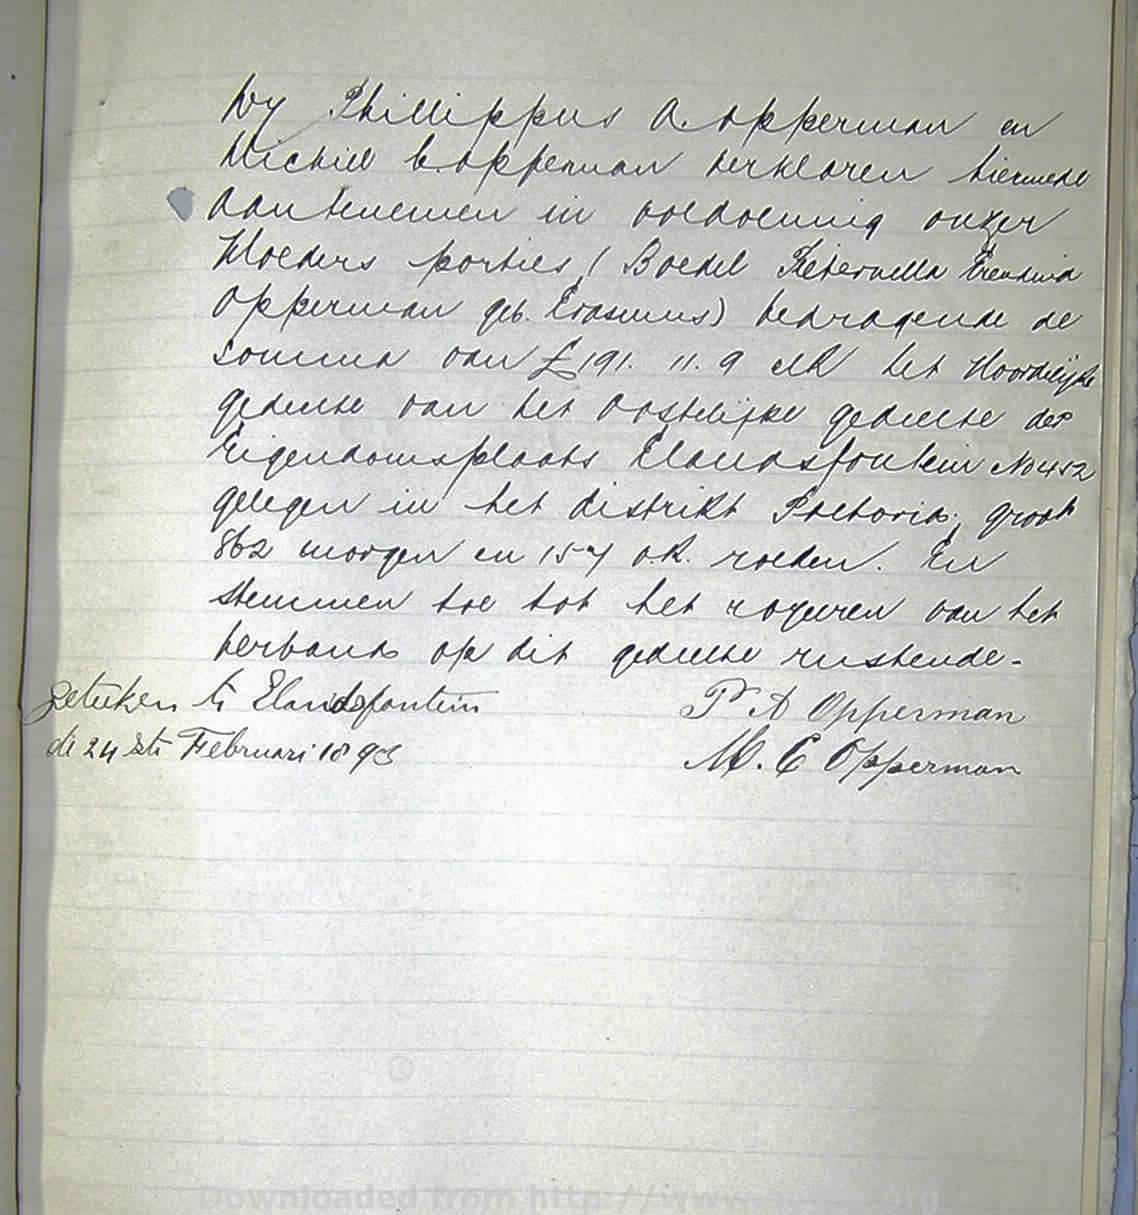 Wy Phillippus A. Opperman en
Michiel C. Opperman verklaren hiermede
aan tenemen in voldoening onzer
Moeders porties (Boedel Petronella
Opperman geb. Erasmus) bedragende de
somma van £191. 11. 9 elk het Noordelijke
gedeelte van het Oostelijke gedeelte der
Eigendomsplaats Elandsfontein No 452
gelegen in het distrikt Pretoria, groot
862 morgen en 157 v.R. roeden. En
stemmen toe tot het royeren van het
verband op dit gedeelte rustende.
Geteken te Elandsfontein
de 24 ste Februari 1893
P A Opperman
M. C Opperman
Downloaded from http://www. .org